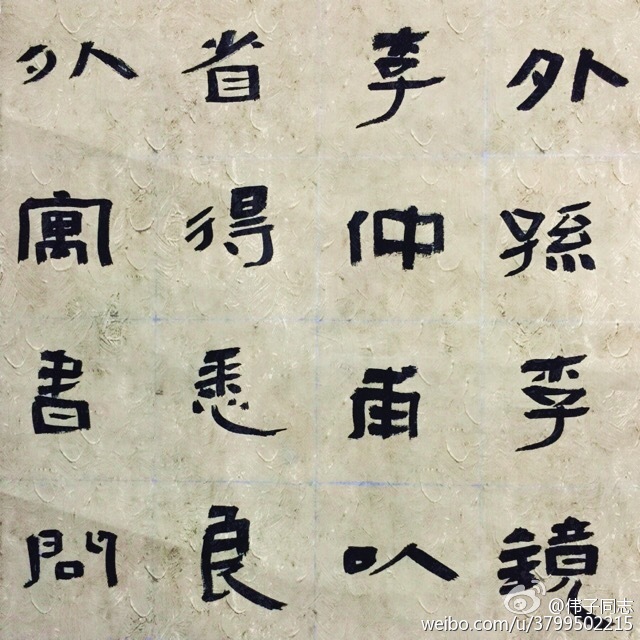 外孫李鏡
李仲甫以
省得悉良
外寓書問
@伟子同志
weibo.com/u/3799502215